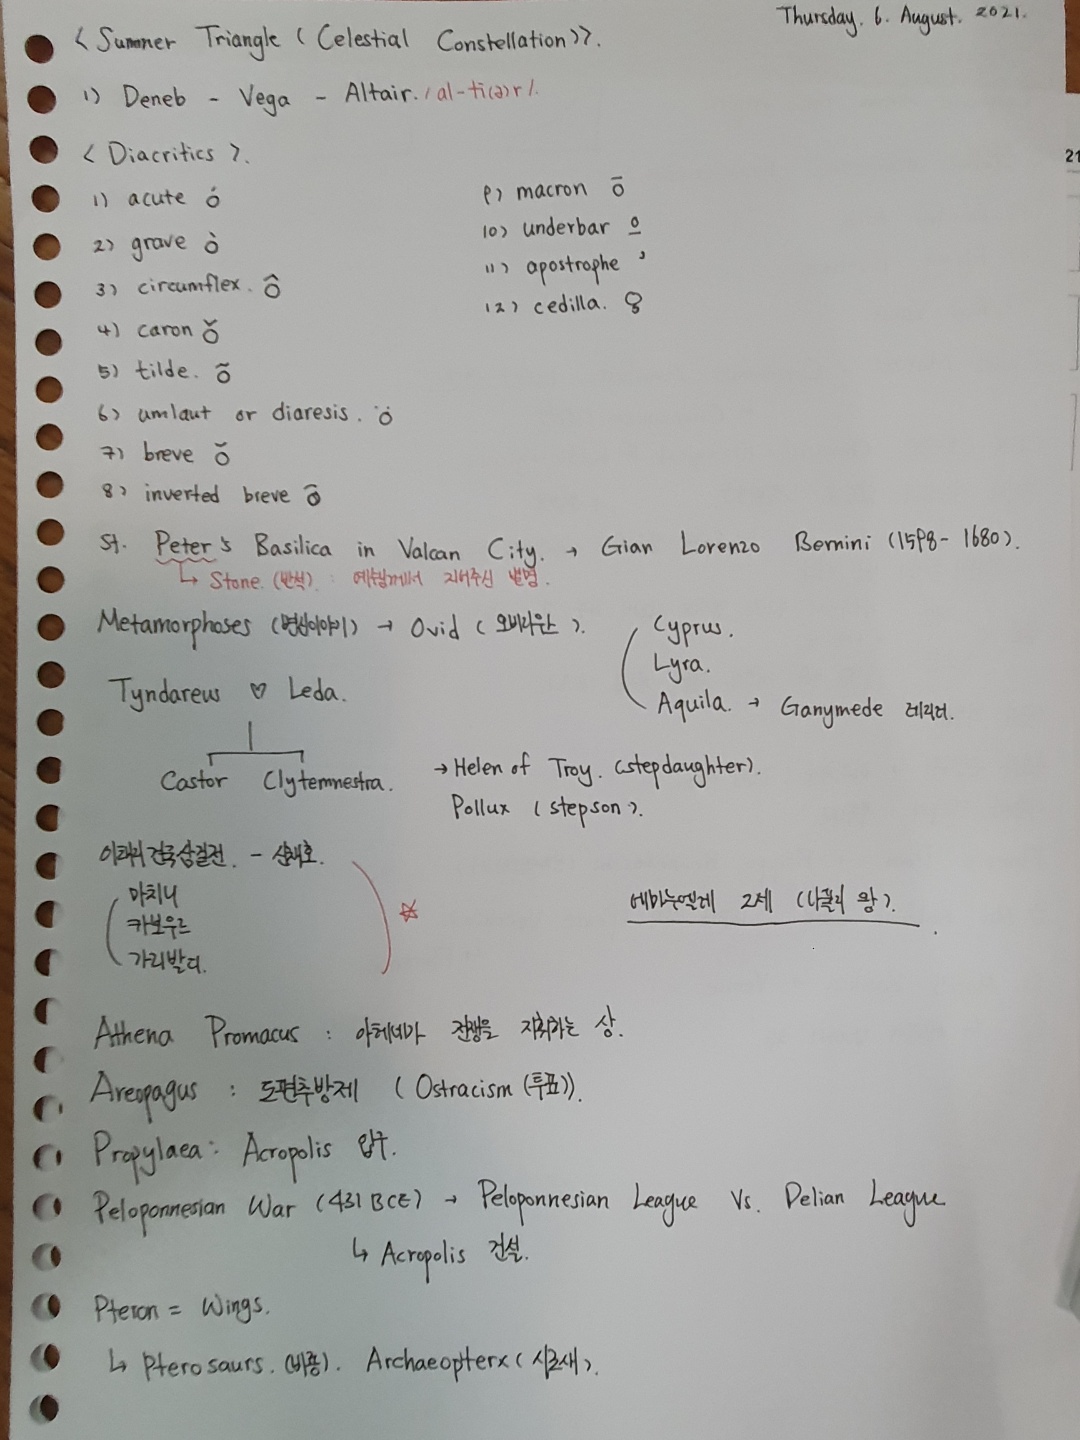 Thursday. 6. August. 2021.
< Summer Triangle ( Celestial Constellation >>.
1) Deneb - Vega - Altair. /al-ti(ə)r/.
21
< Diacritics >.
1) acute ó
2) grave ò
3) circumflex. ô
4) caron ǒ
5) tilde. õ
6) umlaut or diaresis. ö
7) breve ŏ
8) inverted breve ȏ
9) macron ō
10) underbar o̲
11) apostrophe ’
12) cedilla. o̧
St. Peter's Basilica in Vatican City. → Gian Lorenzo Bernini (1598 - 1680).
↳ Stone. (반석) : 예수님께서 지어주신 별명.
Metamorphoses (변신이야기) → Ovid ( 오비디우스 ).
Cyprus.
Lyra.
Aquila. → Ganymede 데려감.
Tyndareus ♡ Leda.
Castor Clytemnestra.
→ Helen of Troy. (stepdaughter).
Pollux ( stepson ).
이태리 건국 삼걸전. - 신채호.
마치니
카보우르
가리발디.
☆
에마누엘레 2세 (나폴리 왕).
Athena Promacus : 아테네가 전쟁을 지휘하는 상.
Areopagus : 도편추방제 ( Ostracism (투표)).
Propylaea : Acropolis 입구.
Peloponnesian War (431 BCE) → Peloponnesian League Vs. Delian League
↳ Acropolis 건설.
Pteron = Wings.
↳ Pterosaurs. (비룡). Archaeopterx ( 시조새 ).